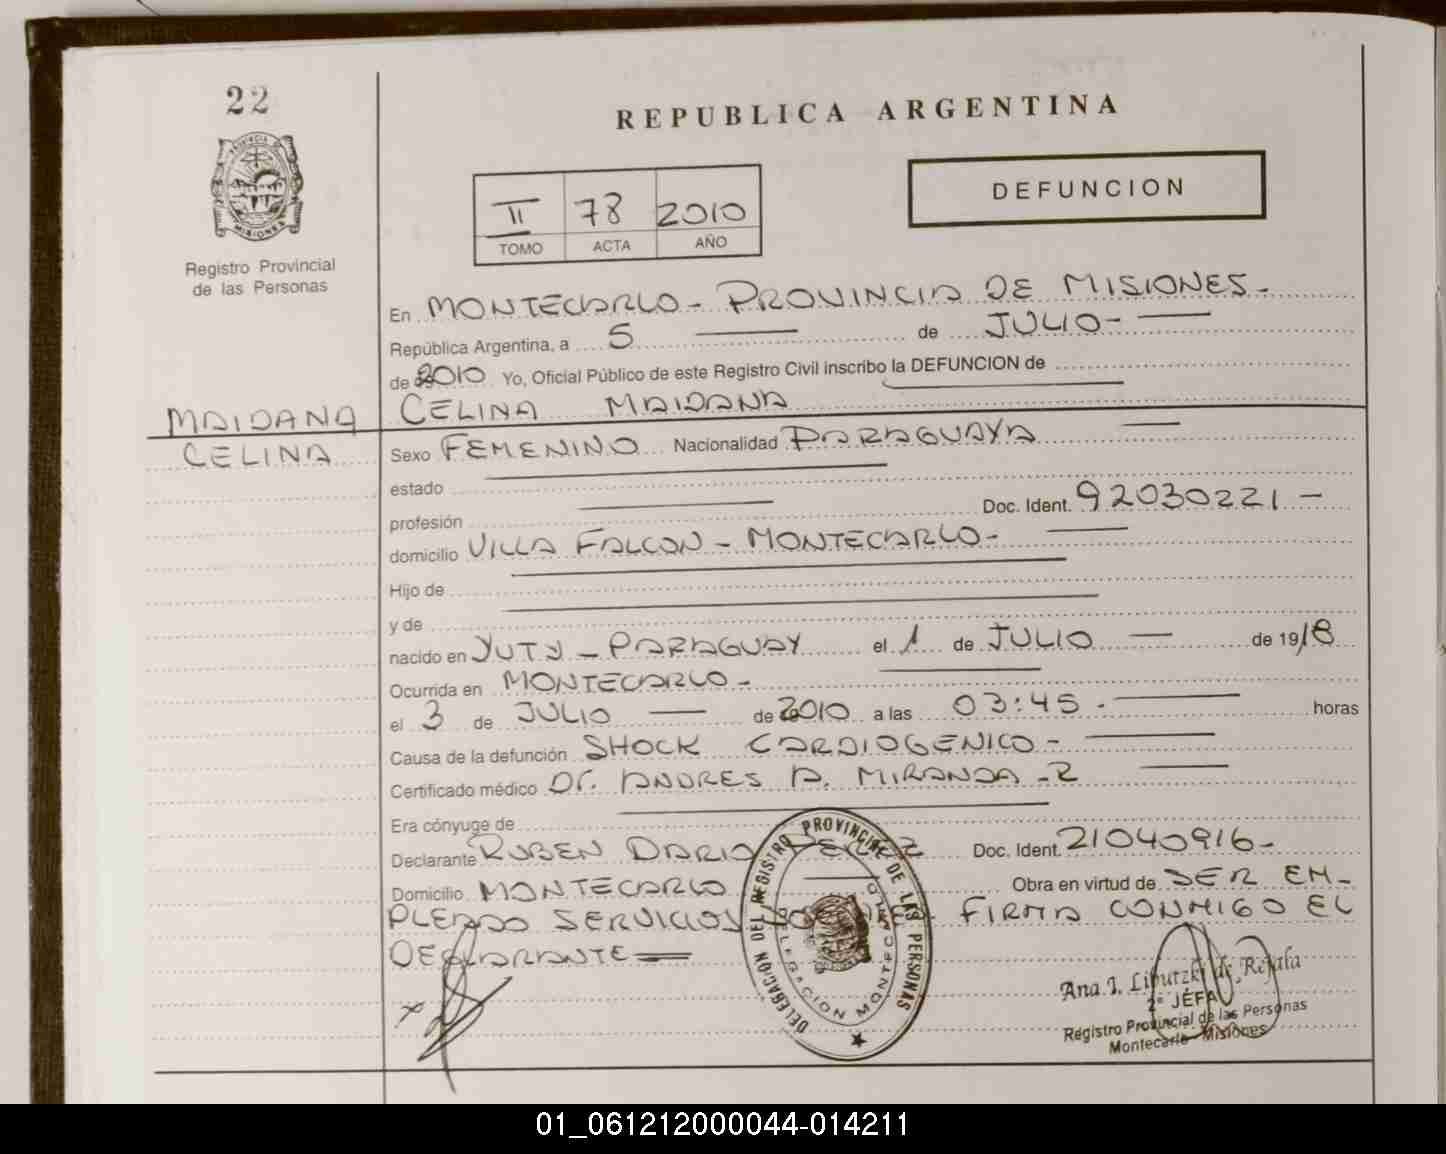 22
REPUBLICA ARGENTINA
PROVINCIA DE
MISIONES
Registro Provincial
de las Personas
II 78 2010
TOMO ACTA AÑO
DEFUNCION
En MONTECARLO - PROVINCIA DE MISIONES -
República Argentina, a 5 de JULIO -
de 2010 Yo, Oficial Público de este Registro Civil inscribo la DEFUNCION de
MAIDANA CELINA MAIDANA
CELINA
Sexo FEMENINO Nacionalidad PARAGUAYA
estado
profesión Doc. Ident. 92030221 -
domicilio VILLA FALCON - MONTECARLO -
Hijo de
y de
nacido en YUTY - PARAGUAY el 1 de JULIO de 1918
Ocurrida en MONTECARLO -
el 3 de JULIO de 2010 a las 03:45 - horas
Causa de la defunción SHOCK CARDIOGENICO -
Certificado médico Dr. ANDRES A. MIRANDA - 2
Era cónyuge de
Declarante RUBEN DARIO Doc. Ident. 21040916 -
Domicilio MONTECARLO Obra en virtud de SER EM-
PLEADO SERVICIOS FIRMA CONMIGO EL
DECLARANTE
DELEGACION DEL REGISTRO PROVINCIAL DE LAS PERSONAS
DELEGACION MONTECARLO
Ana I. Liputzki de Rejala
2º JEFA
Registro Provincial de las Personas
Montecarlo - Misiones
01_061212000044-014211